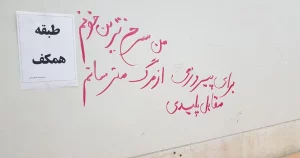 طبقه
همکف
من سرخ ترین خونم
برای پیروزی از مرگ مترسانم
مقابل پلیدی